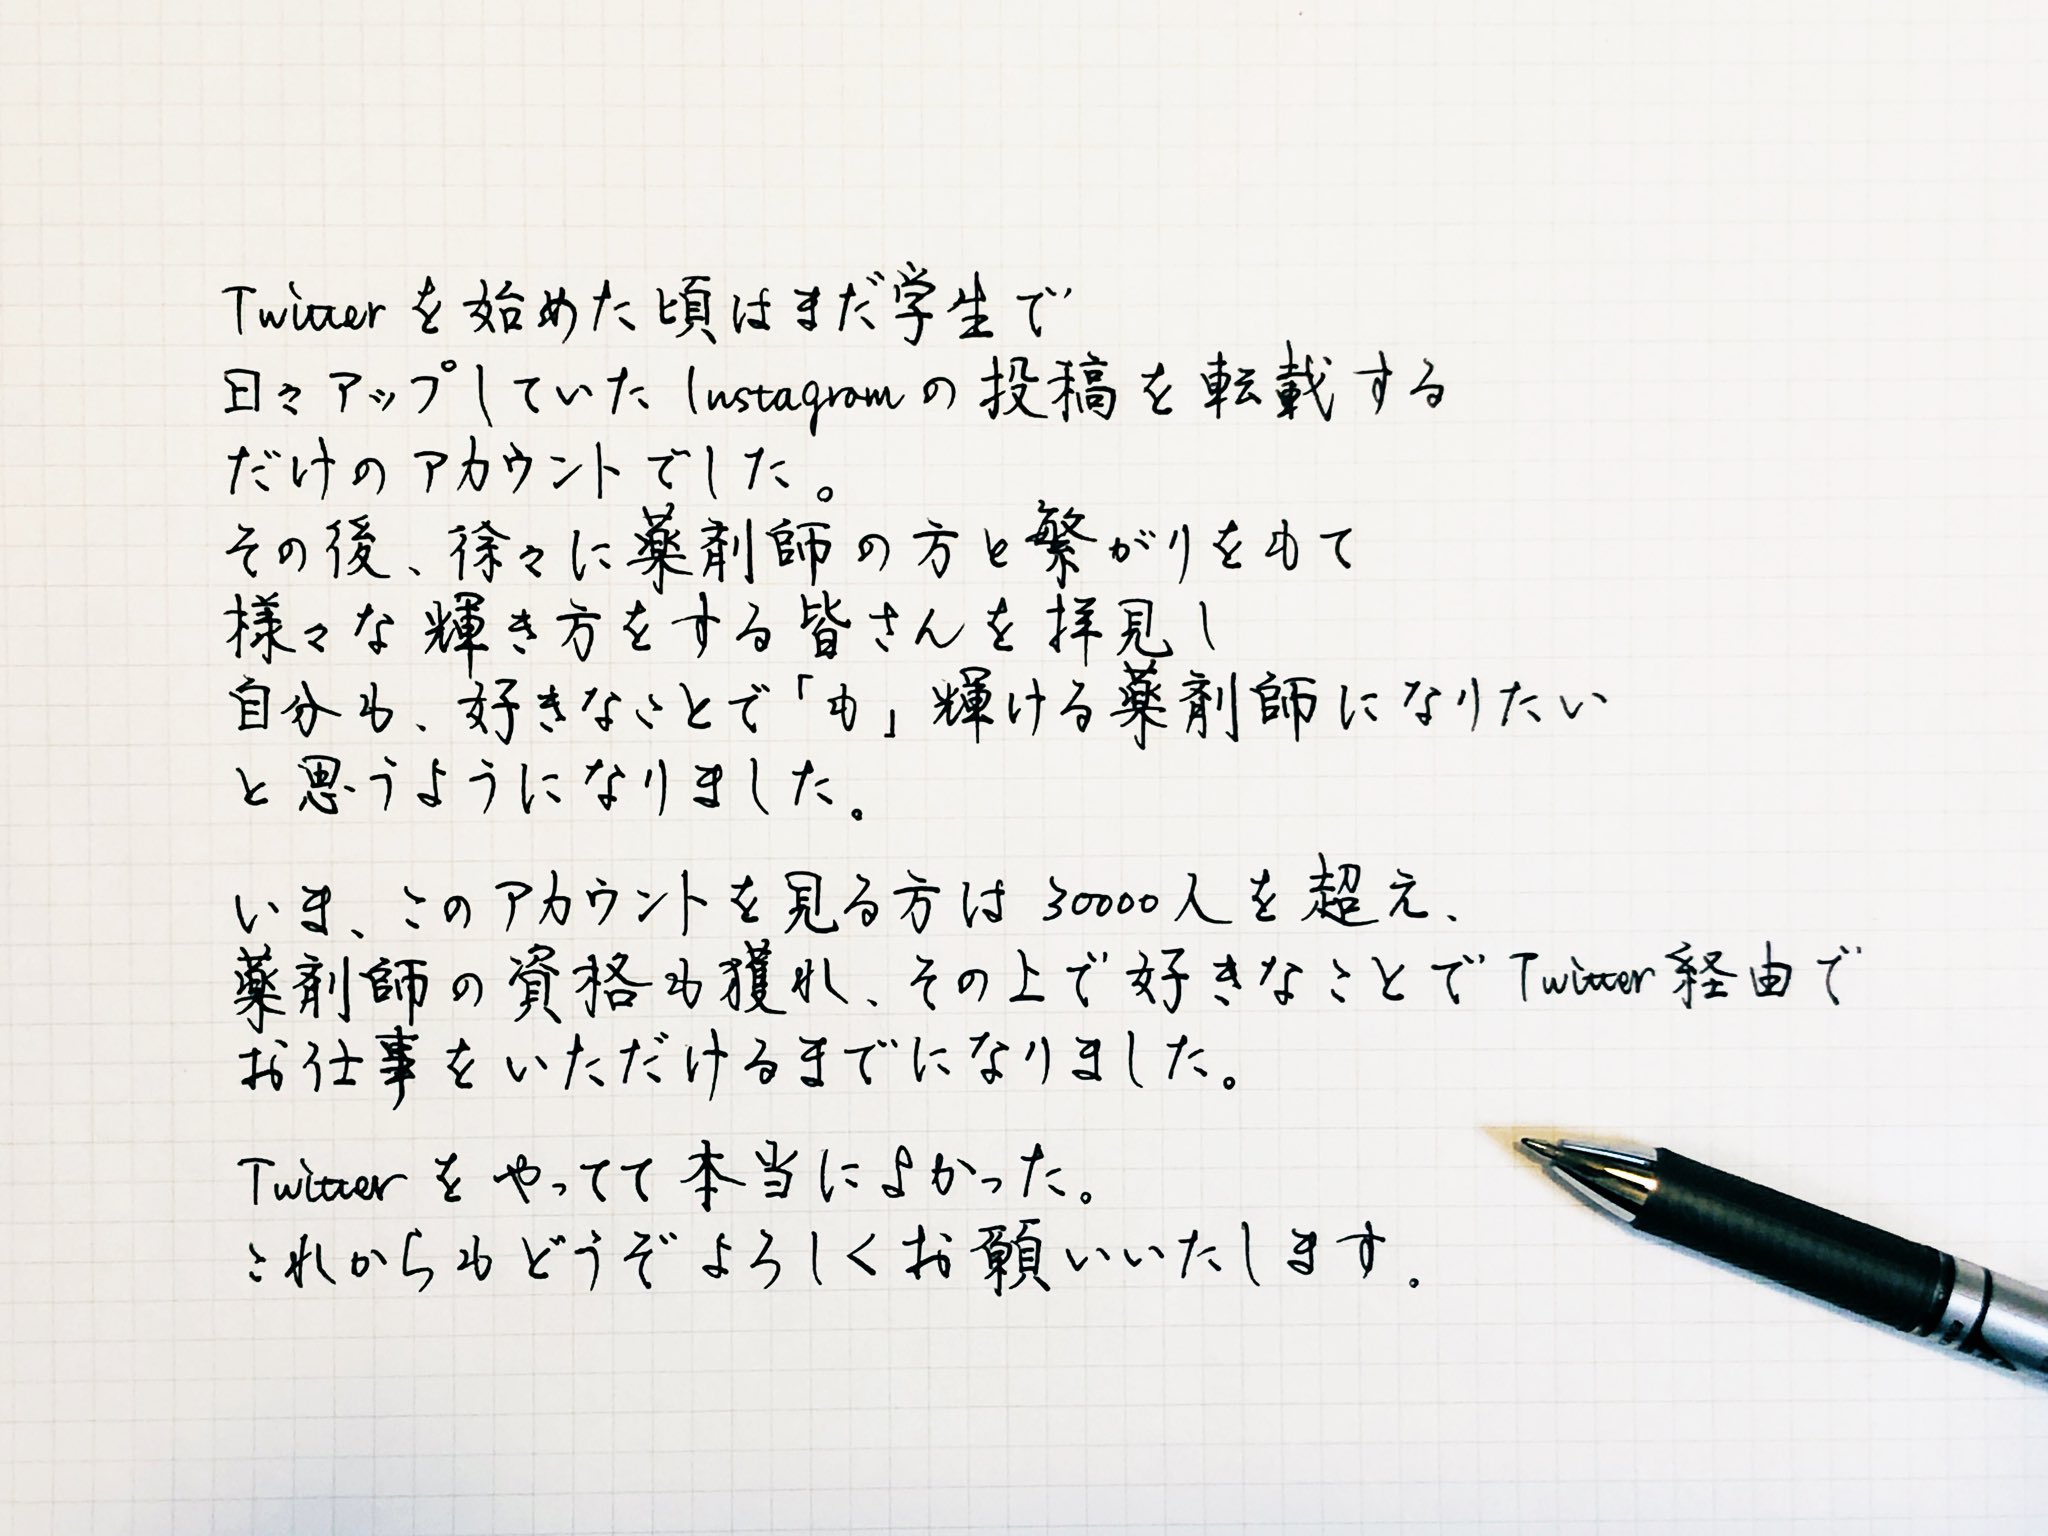 Twitterを始めた頃はまだ学生で
日々アップしていたInstagramの投稿を転載する
だけのアカウントでした。
その後、徐々に薬剤師の方と繋がりをもて
様々な輝き方をする皆さんを拝見し
自分も、好きなことで「も」輝ける薬剤師になりたい
と思うようになりました。
いま、このアカウントを見る方は30000人を超え、
薬剤師の資格も獲れ、その上で好きなことでTwitter経由で
お仕事をいただけるまでになりました。
Twitterをやってて本当によかった。
これからもどうぞよろしくお願いいたします.